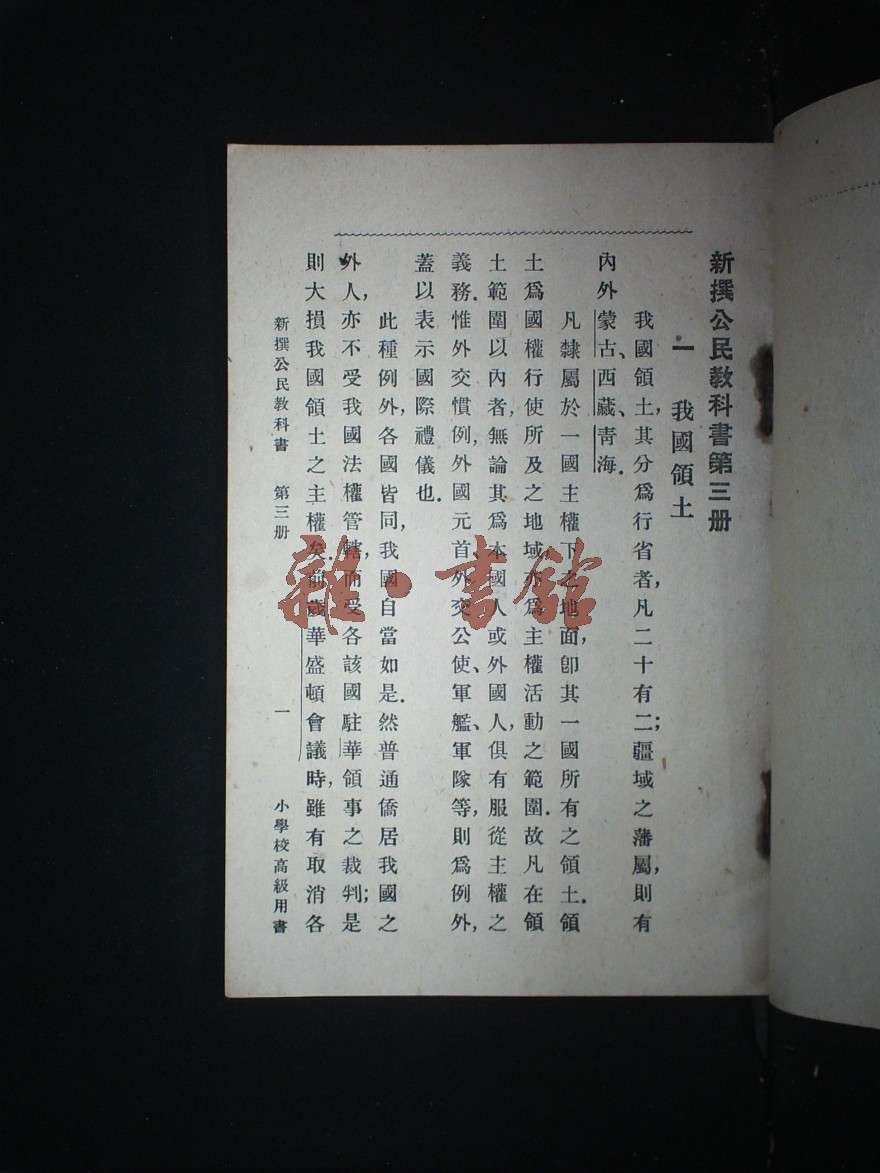 新撰公民教科書第三册
一　我國領土
我國領土,其分爲行省者,凡二十有二;疆域之藩屬,則有
內外蒙古、西藏、靑海.
凡隸屬於一國主權下之地面,卽其一國所有之領土.領
土爲國權行使所及之地域,亦爲主權活動之範圍.故凡在領
土範圍以內者,無論其爲本國人或外國人,俱有服從主權之
義務.惟外交慣例,外國元首、外交公使、軍艦、軍隊等,則爲例外,
蓋以表示國際禮儀也.
此種例外,各國皆同,我國自當如是.然普通僑居我國之
外人,亦不受我國法權管轄,而受各該國駐華領事之裁判;是
則大損我國領土之主權矣.前歲華盛頓會議時,雖有取消各
新撰公民教科書　第三册　一　小學校高級用書
雜·書館